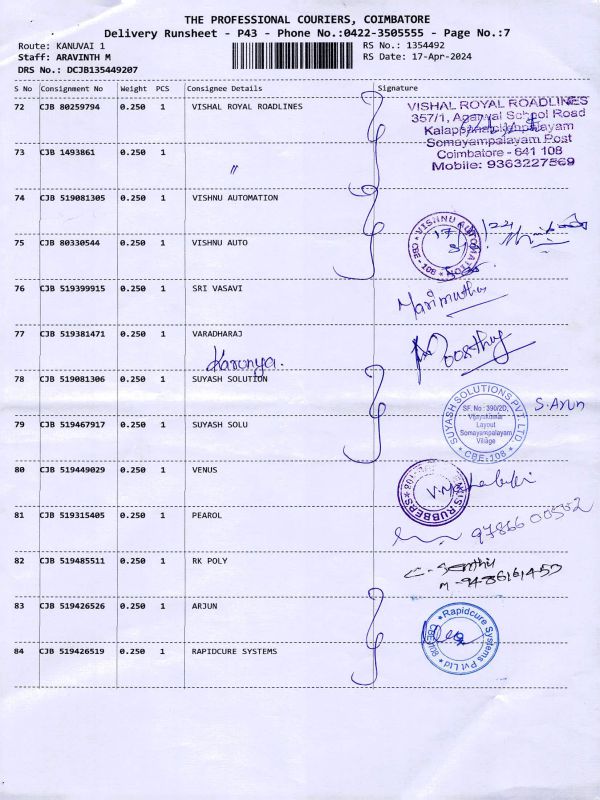 THE PROFESSIONAL COURIERS, COIMBATORE
Delivery Runsheet - P43 - Phone No.:0422-3505555 - Page No.:7
Route: KANUVAI 1
RS No.: 1354492
Staff: ARAVINTH M
RS Date: 17-Apr-2024
DRS No.: DCJB135449207
S No Consignment No Weight PCS Consignee Details Signature
72 CJB 80259794 0.250 1 VISHAL ROYAL ROADLINES
VISHAL ROYAL ROADLINES
357/1, Agarwal School Road
Somayampalayam Post
Coimbatore - 641 108
Mobile: 9363227569
73 CJB 1493861 0.250 1 〃
74 CJB 519081305 0.250 1 VISHNU AUTOMATION
VISHNU AUTOMATION
* CBE - 108 *
75 CJB 80330544 0.250 1 VISHNU AUTO
76 CJB 519399915 0.250 1 SRI VASAVI
Marimuthu
77 CJB 519381471 0.250 1 VARADHARAJ
Karunya.
78 CJB 519081306 0.250 1 SUYASH SOLUTION
SUYASH SOLUTIONS PVT. LTD
* CBE-108 *
SF. No : 390/2D,
Vijayakumar
Layout
Somayampalayam
Village
S. Arun
79 CJB 519467917 0.250 1 SUYASH SOLU
80 CJB 519449029 0.250 1 VENUS
RUBBERS
81 CJB 519315405 0.250 1 PEAROL
82 CJB 519485511 0.250 1 RK POLY
83 CJB 519426526 0.250 1 ARJUN
Rapidcure Systems Pvt Ltd
84 CJB 519426519 0.250 1 RAPIDCURE SYSTEMS